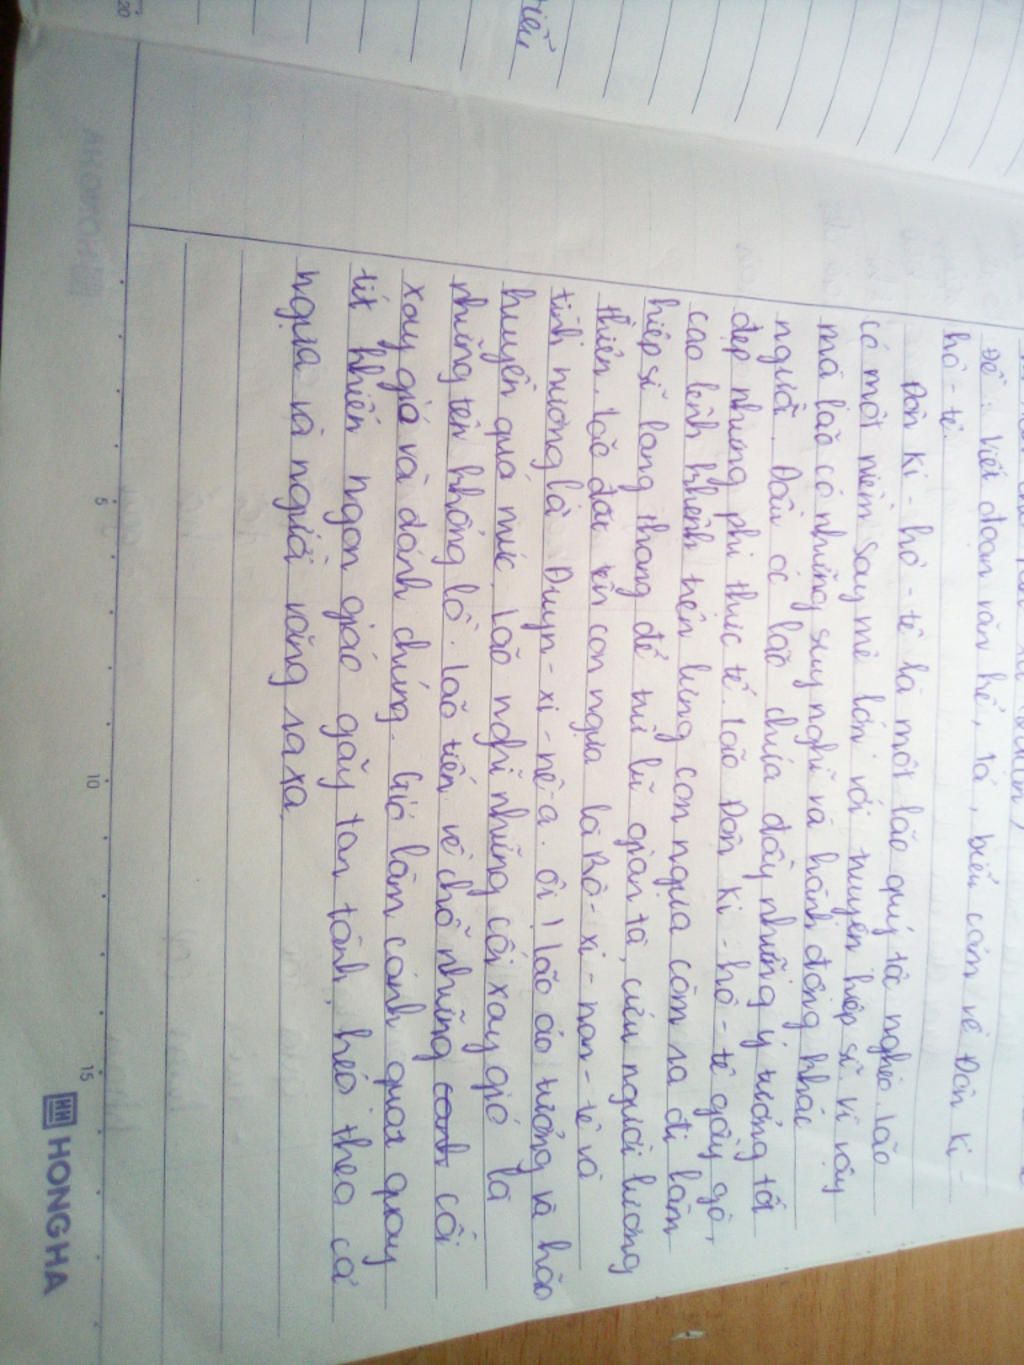 Đề: Viết đoạn văn kể, tả, biểu cảm về Đôn Ki-
hô-tê.
Đôn Ki-hô-tê là một lão quý tộc nghèo. Lão
có một niềm say mê lớn với truyện hiệp sĩ. Vì vậy
mà lão có những suy nghĩ và hành động khác
người. Đầu óc lão chứa đầy những ý tưởng tốt
đẹp nhưng phi thực tế. Lão Đôn Ki-hô-tê gầy gò,
cao lênh khênh trên lưng con ngựa còm ra đi làm
hiệp sĩ lang thang để trừ lũ gian tà, cứu người lương
thiện. Lão đặt tên con ngựa là Rô-xi-nan-tê và
tình nương là Đuyn-xi-nê-a. Ôi! lão ảo tưởng và hão
huyền quá mức. Lão nghĩ những cối xay gió là
những tên khổng lồ. Lão tiến về chỗ những cối
xay gió và đánh chúng. Gió làm cánh quạt quay
tít khiến ngọn giáo gãy tan tành, kéo theo cả
ngựa và người văng ra xa.
5
10
15
20
HONG HA